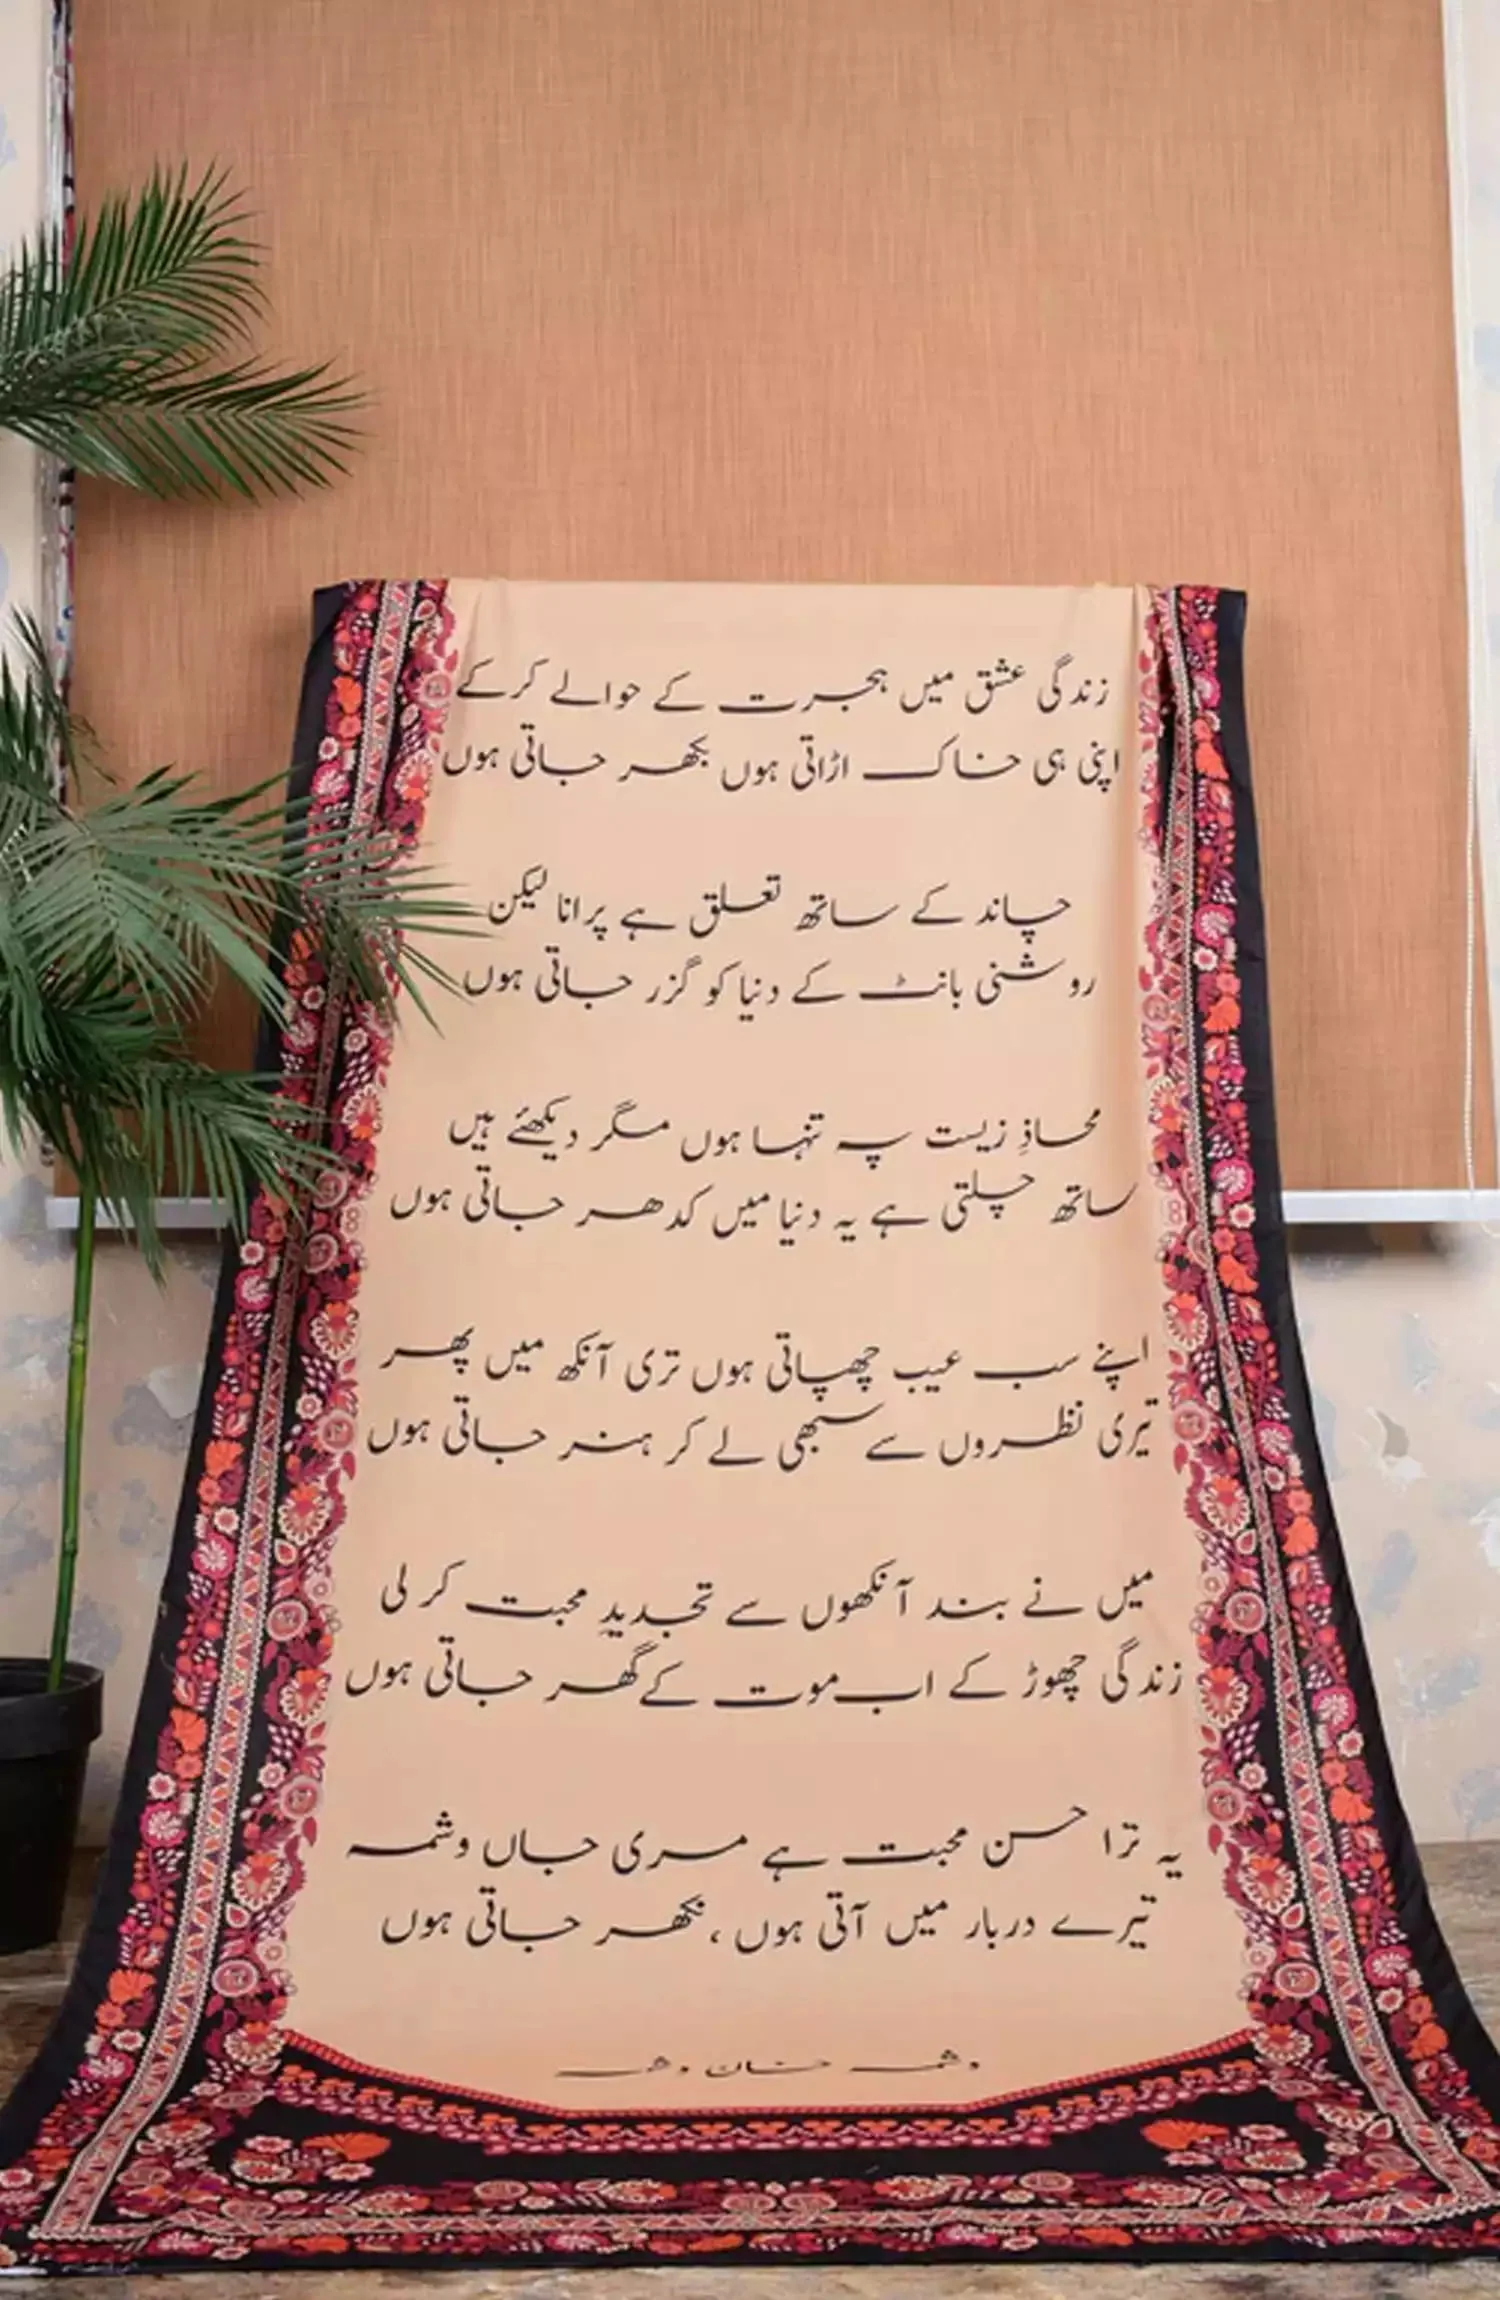 زندگی عشق میں ہجرت کے حوالے کر کے
اپنی ہی خاک اڑاتی ہوں بکھر جاتی ہوں
چاند کے ساتھ تعلق ہے پرانا لیکن
روشنی بانٹ کے دنیا کو گزر جاتی ہوں
محاذِ زیست پہ تنہا ہوں مگر دیکھئے ہیں
ساتھ چلتی ہے یہ دنیا میں کدھر جاتی ہوں
اپنے سب عیب چھپاتی ہوں تری آنکھ میں پھر
تیری نظروں سے سبھی لے کر ہنر جاتی ہوں
میں نے بند آنکھوں سے تجدیدِ محبت کر لی
زندگی چھوڑ کے اب موت کے گھر جاتی ہوں
یہ ترا حسن محبت ہے مری جاں وشمہ
تیرے دربار میں آتی ہوں ، نکھر جاتی ہوں
وشمہ خان وشمہ